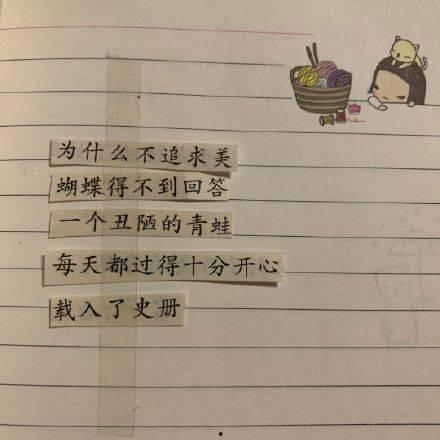 为什么不追求美
蝴蝶得不到回答
一个丑陋的青蛙
每天都过得十分开心
载入了史册